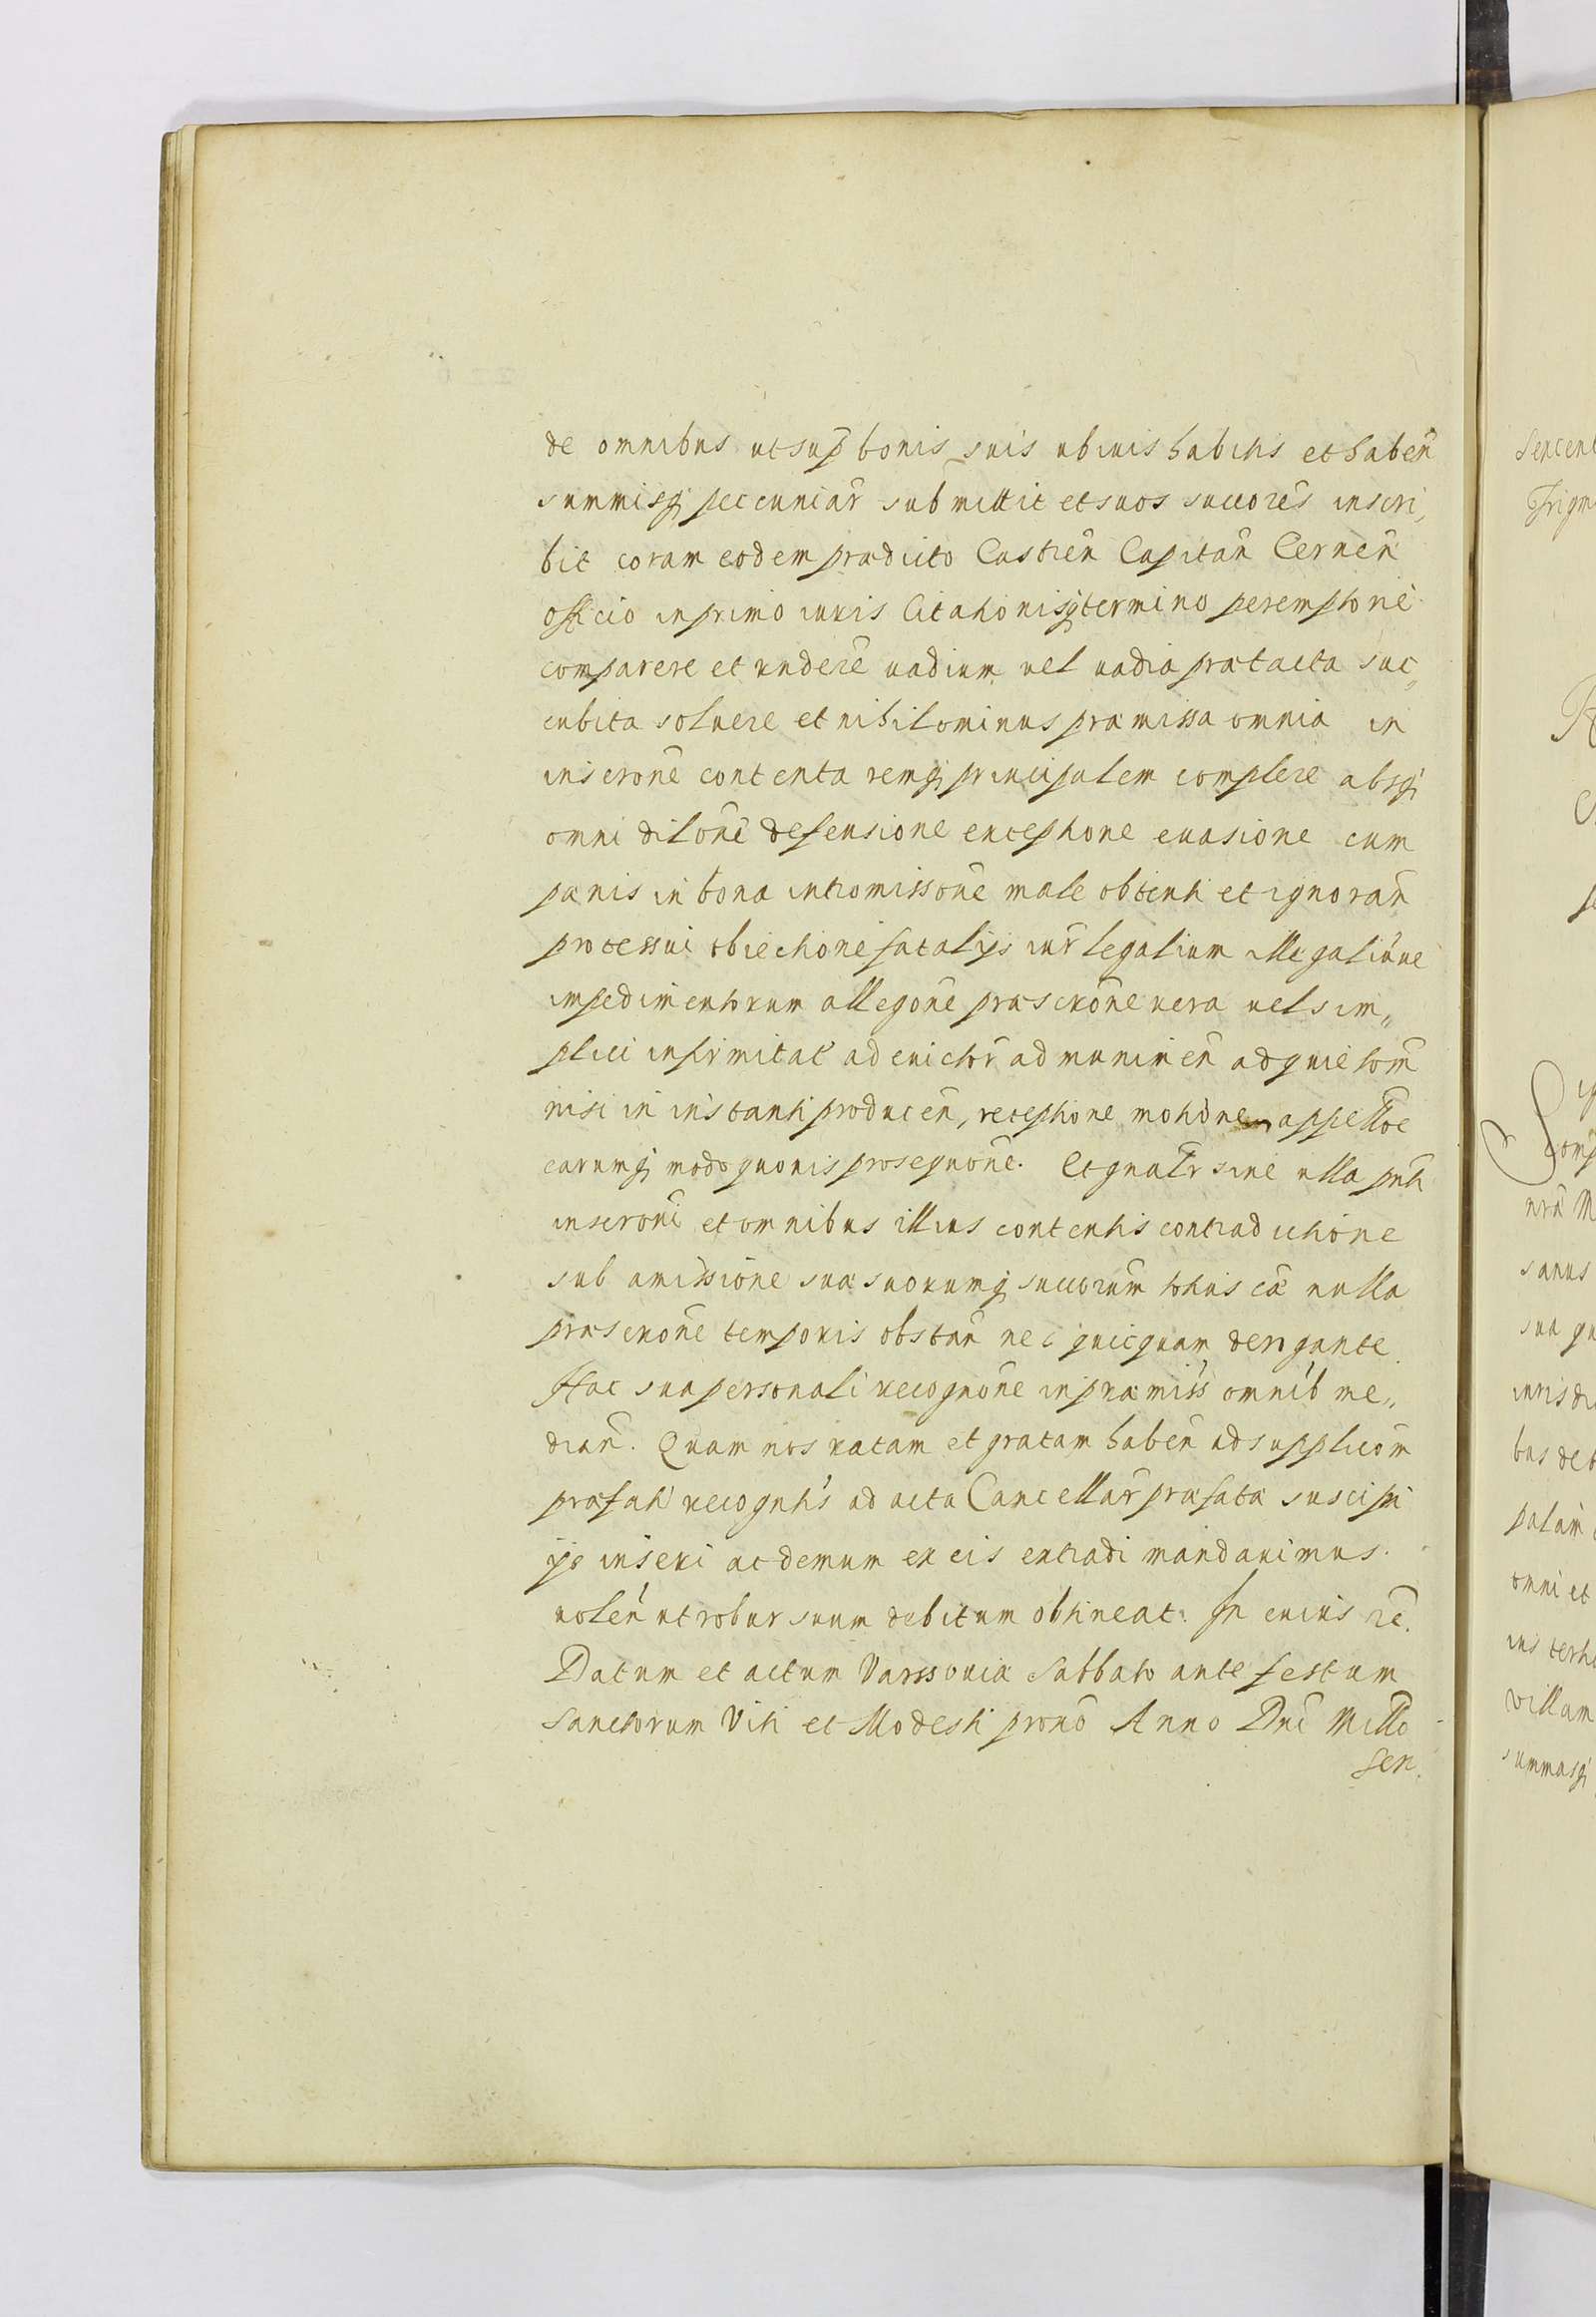 de omnibus ut sup bonis suis ubiuis habitis et haben
summisq peccuniar submittit et suos succores inscri,
bit coram eodem prædicto Castren Capitan Cernen
Officio in primo iuris Citationisq termino peremptorie
comparere et undere uadium uel uadia prætacta suc,,
cubita soluere et nihilominus præmissa omnia in
inscrone contenta remq principalem complere absq
omni dilone defensione exceptione euasione cum
pænis in bona intromissone male obtenti et ignoran
processui obiectione fatalijs iur legalium illegaliũue
impedimentorum allegone præscrone uera uel sim,,
plici infirmitat ad euictor ad munimen ad quietom
nisi in instanti producen, receptione motione appelloe
earumq modoquouis prosequone. Et gnalr sine ulla pnti
inscroni et omnibus illius contentis contradictione
sub amissione suæ suorumq succorum totius cæ nulla
præscrone temporis obstan nec quicquam derigante
Hac sua personali recognone in præmiss omnib me,,
dian. Quam nos ratam et gratam haben ad supplicom
præfati recogntis ad acta Cancellar præfatæ suscipi
ijs inseri ac demum ex eis extradi mandauimus.
uolen ut robur suum debitum obtineat. In cuius re.
Datum et actum Varssouiæ Sabbato ante festum
Sanctorum Viti et Modesti prono Anno Dni Millo
Sex.
Sexcent
Trigm
sanus
sua qu
iurisdi
bus deb
palam
omni et
ius terti
villam
summasq